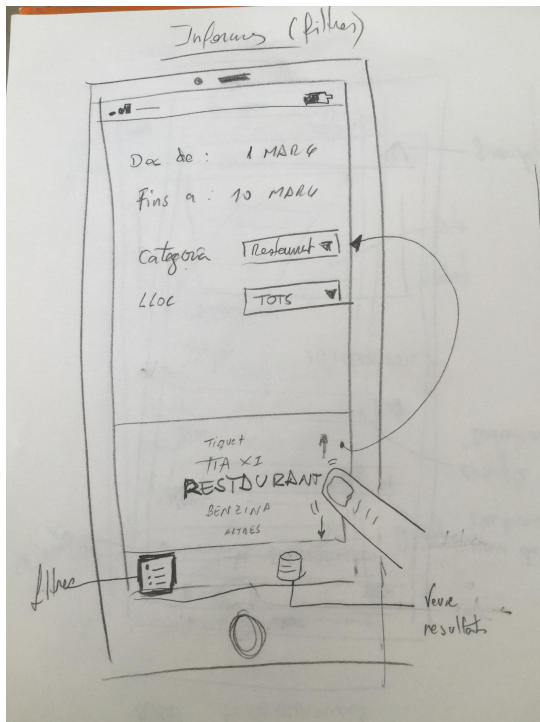 Informes (filtres)
Des de : 1 MARÇ
Fins a : 10 MARÇ
Categoria Restaurant
LLOC TOTS
Tiquet
TAXI
RESTAURANT
BENZINA
ALTRES
filtres
Veure
resultats